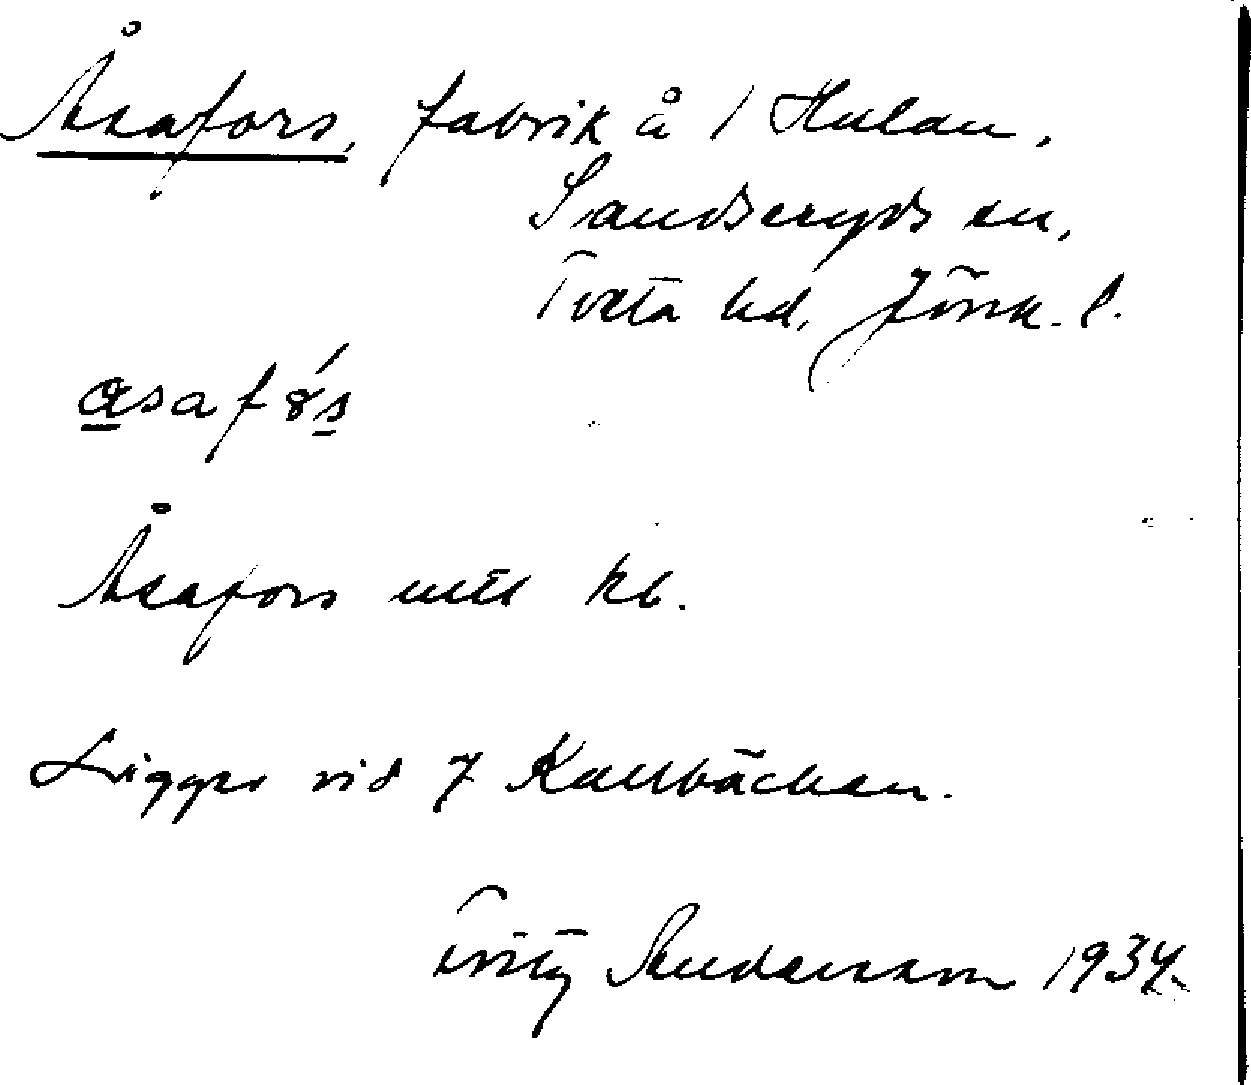 Åsafors, fabrik å 1 Hulan,
Sandseryds sn,
Tveta hd, Jönk. l.
Åsafors uttl kb.
Ligger vid 7 Kallbäcken.
Fritz Andersson 1934.